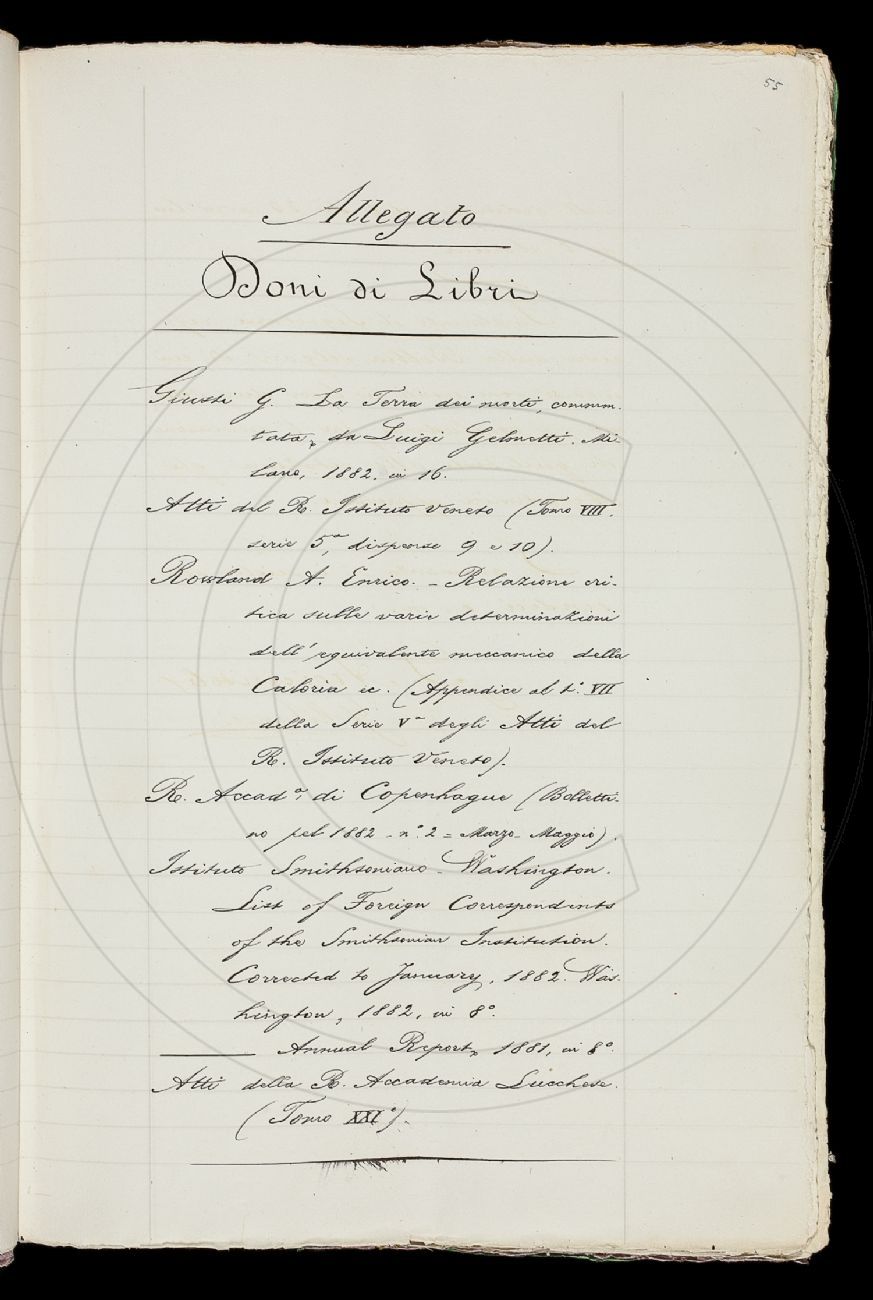 55
Allegato
Doni di Libri
Giusti G. La Terra dei morti, commen-
tata, da Luigi Gelmetti. Mi-
lano, 1882. in 16.
Atti del R. Istituto Veneto (Tomo VIII.
serie 5ª, dispense 9 e 10).
Rowland A. Enrico. - Relazione cri-
tica sulle varie determinazioni
dell'equivalente meccanico della
Caloria ec. (Appendice al t.º VII
della Serie Vª degli Atti del
R. Istituto Veneto).
R. Accadª. di Copenhague (Bolletti-
no pel 1882 - nº. 2 = Marzo - Maggio).
Istituto Smithsoniano - Washington.
List of Foreign Correspondents
of the Smithsonian Institution.
Corrected to January, 1882. Was-
hington, 1882, in 8º.
Annual Report, 1881, in 8º.
Atti della R. Accademia Lucchese.
(Tomo XXIº).